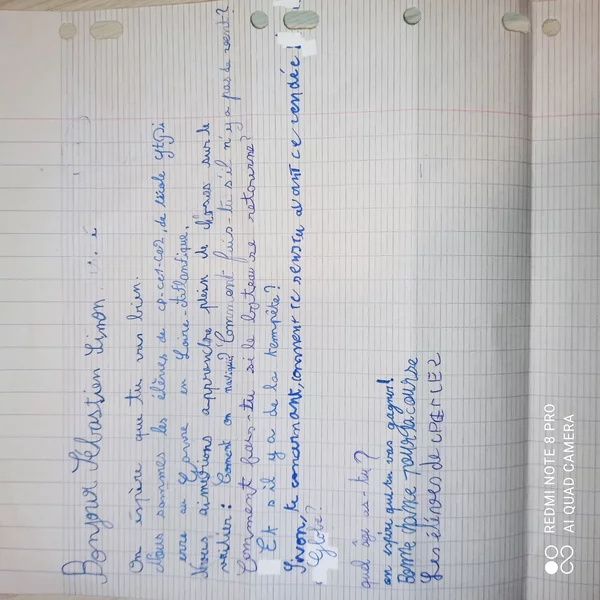 Bonjour Sébastien Simon
On espère que tu vas bien.
Nous sommes les élèves de cp-ce1-ce2, de l'école
en Loire-Atlantique.
Nous aimerions apprendre plein de choses sur le
voilier: Coment on navigue? Comment fais-tu s'il n'y a pas de vent?
Comment fais-tu si le bateau se retourne?
Et s'il y a de la tempête?
Sinon, te concernant, comment te sens tu avant ce vendée
Globe?
quel âge as-tu?
on espère que tu vas gagner!
Bonne chance pour ta course
Les élèves de
REDMI NOTE 8 PRO
AI QUAD CAMERA